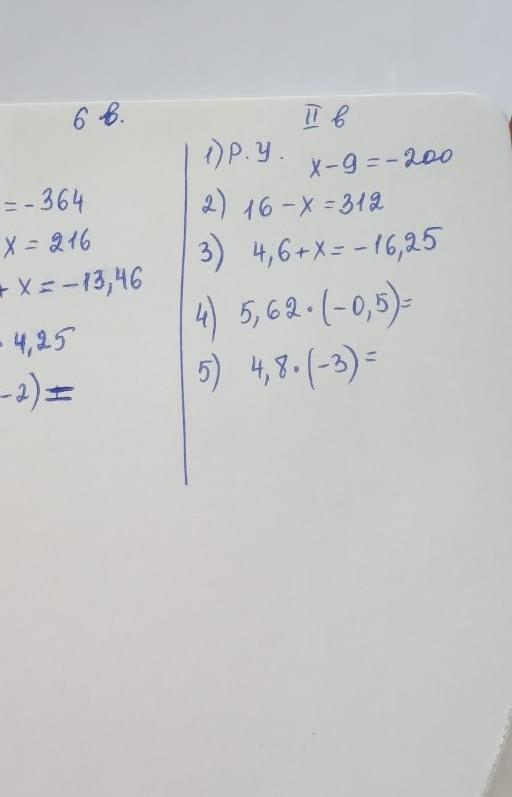 6 в.
= - 364
x = 216
+ x = -13,46
· 4,25
-2) =
II в
1) Р.У. x - 9 = -200
2) 16 - x = 312
3) 4,6 + x = -16,25
4) 5,62 · (-0,5) =
5) 4,8 · (-3) =